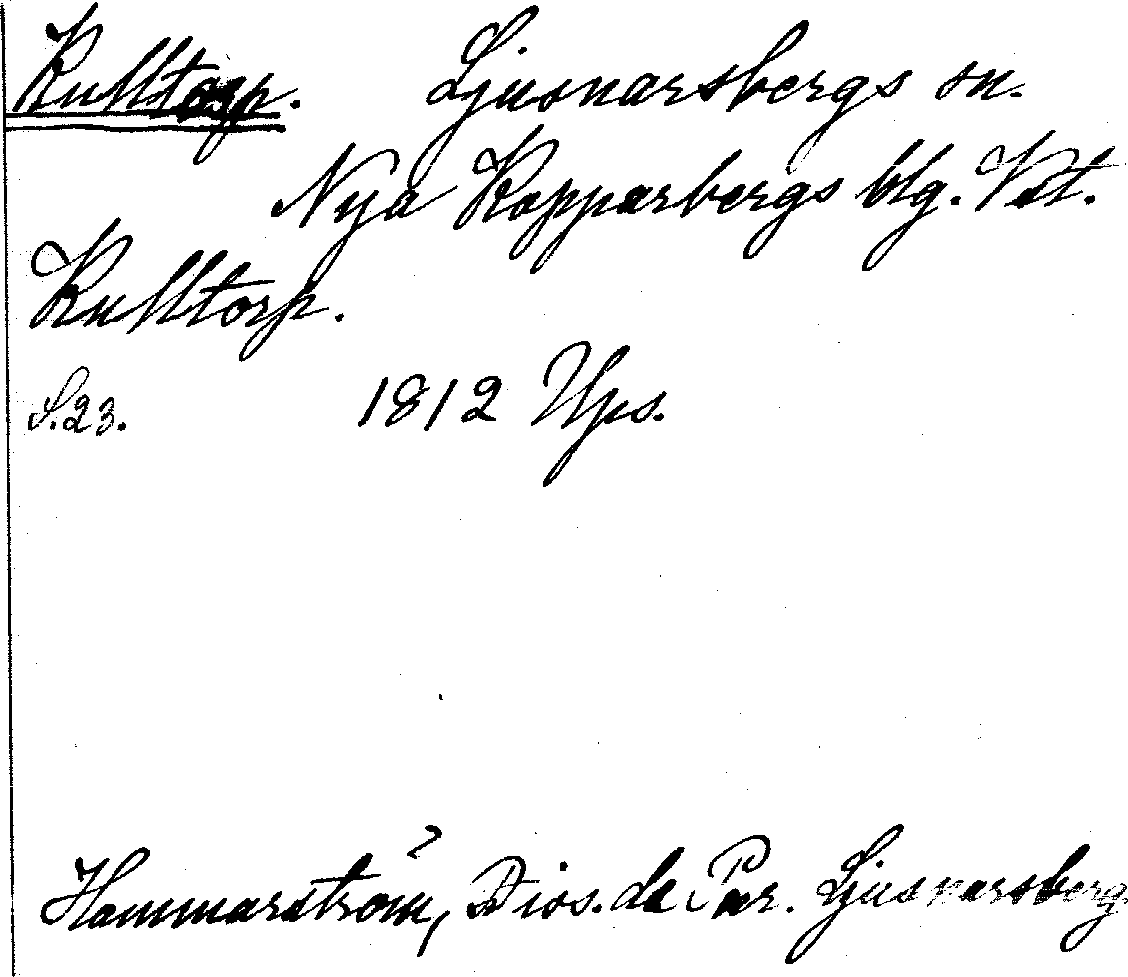 Kulltorp. Ljusnarsbergs sn.
Nya Kopparbergs blg. Vstm.
Kulltorp.
S.23. 1812 Ups.
Hammarström, Diss. de Par. Ljusnarsberg.